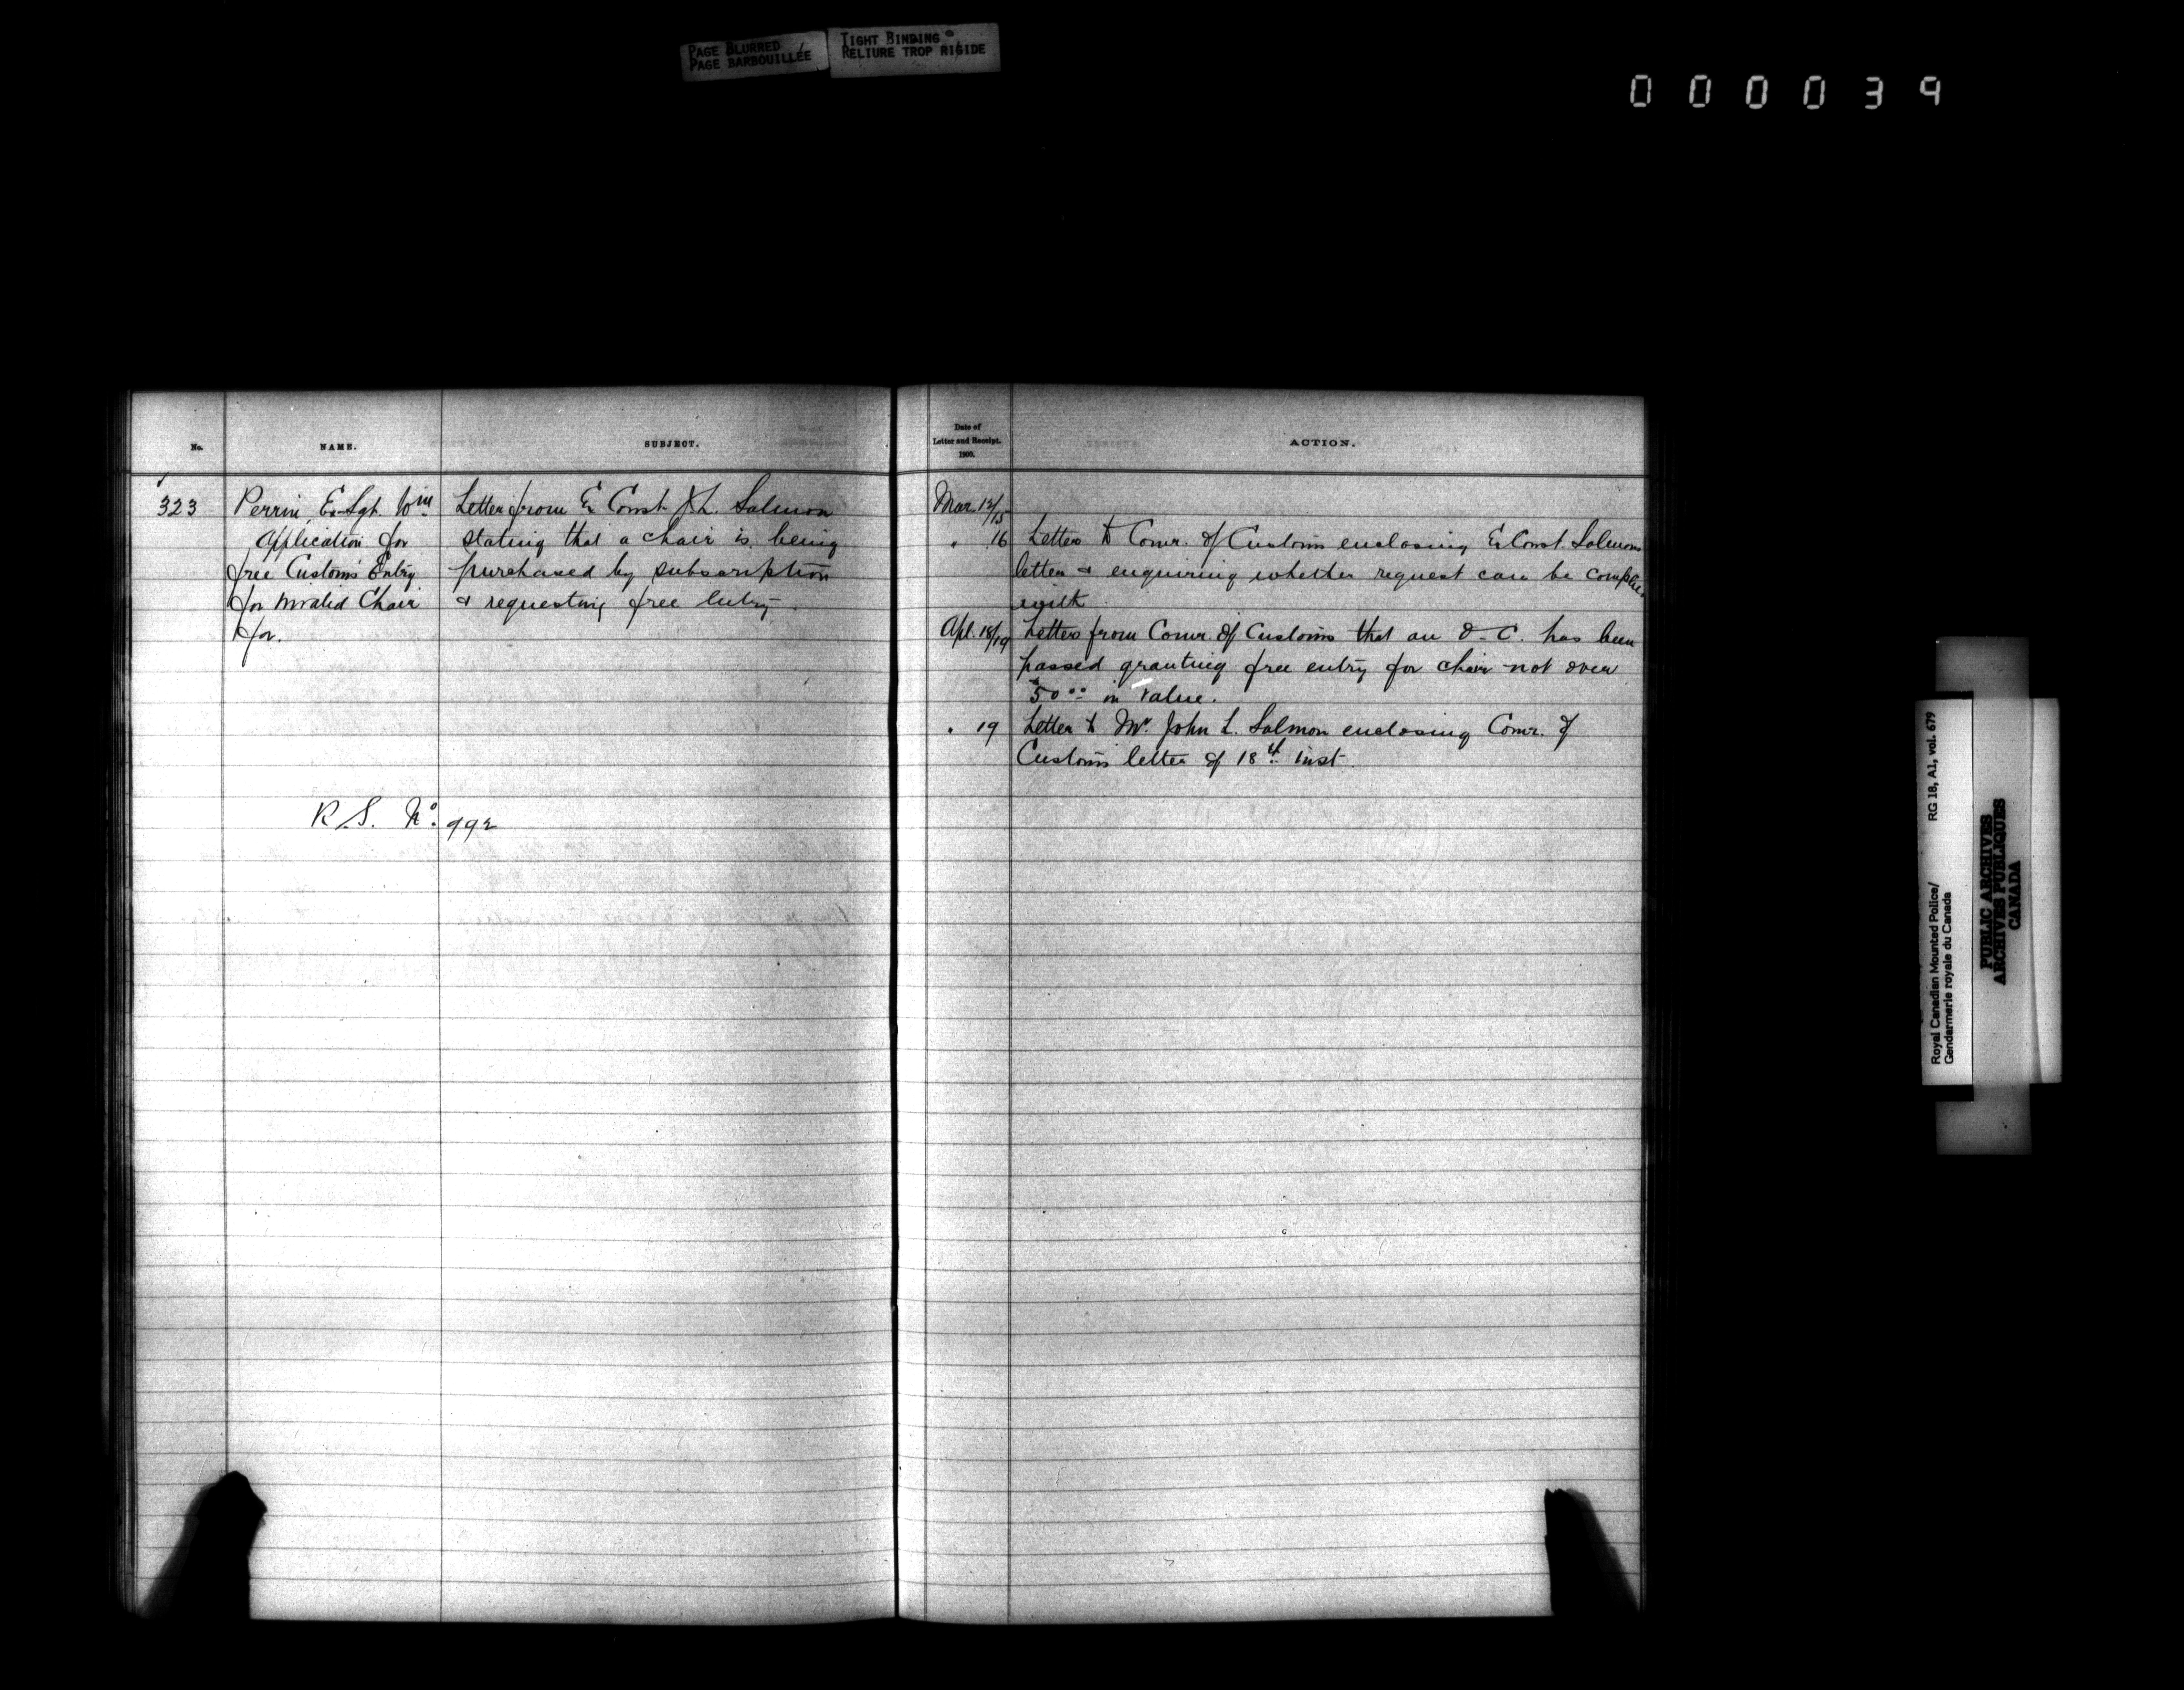 PAGE BLURRED
PAGE BARBOUILLÉE
TIGHT BINDING
RELIURE TROP RIGIDE
000039
No.
NAME.
SUBJECT.
Date of
Letter and Receipt.
1900.
ACTION.
323
Perrin, Ex-Sgt. Wm
Application for
free Customs Entry
for Invalid Chair
for.
Letter from Ex Const J.L. Salmon
stating that a chair is being
purchased by subscription
& requesting free entry.
R.S. No. 992
Mar. 12/15
" 16 Letter to Comr. of Customs enclosing Ex Const. Salmons
letter & enquiring whether request can be complied
with.
Apl. 18/19 Letter from Comr. of Customs that an O-C. has been
passed granting free entry for chair not over
$50.00 in value.
" 19 Letter to Mr. John L. Salmon enclosing Comr. of
Customs letter of 18th inst.
RG 18, A1, vol. 679
Royal Canadian Mounted Police/
Gendarmerie royale du Canada
PUBLIC ARCHIVES
ARCHIVES PUBLIQUES
CANADA